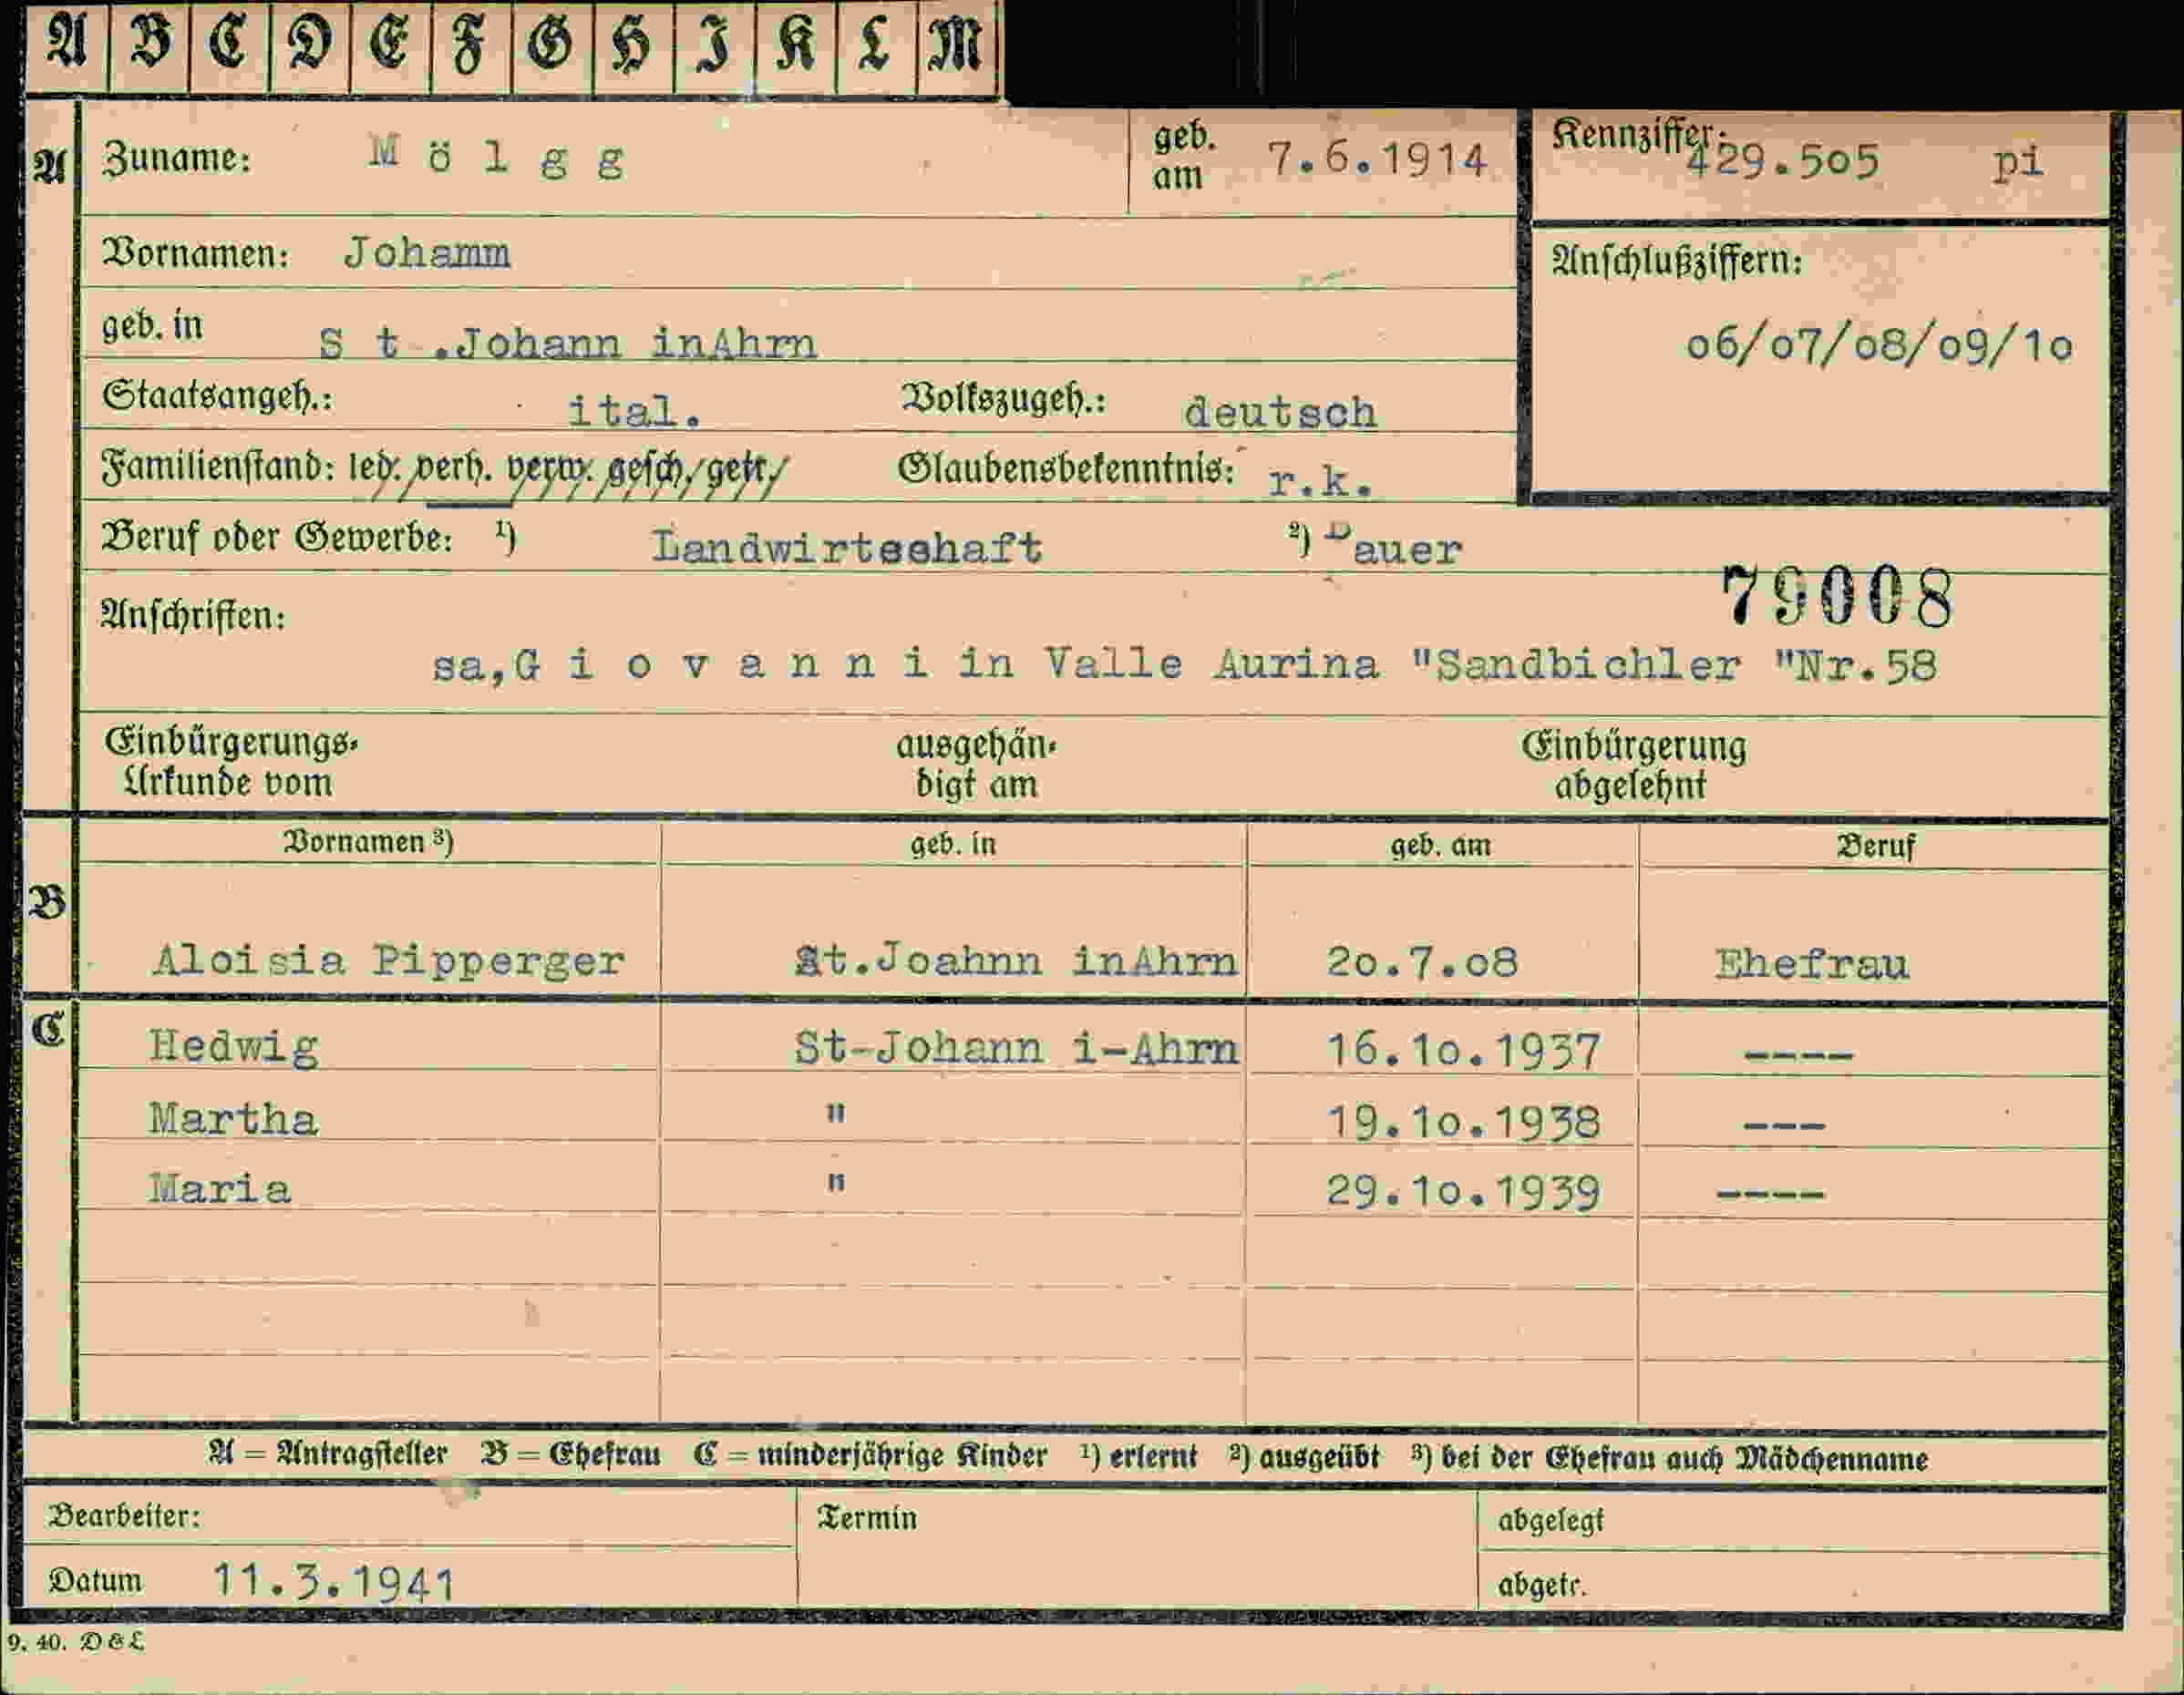 A B C D E F G H I K L M
A Zuname: M ö l g g geb. am 7.6.1914 Kennziffer: 429.505 pi
Vornamen: Johamm Anschlußziffern:
geb. in S t .Johann inAhrn o6/o7/o8/o9/1o
Staatsangeh.: ital. Volkszugeh.: deutsch
Familienstand: led. verh. verw. gesch. getr. Glaubensbekenntnis: r.k.
Beruf oder Gewerbe: ¹) Landwirtschaft ²) Bauer
79008
Anschriften:
sa,G i o v a n n i in Valle Aurina "Sandbichler "Nr.58
Einbürgerungs- ausgehän- Einbürgerung
Urkunde vom digt am abgelehnt
B Vornamen ³) geb. in geb. am Beruf
Aloisia Pipperger St.Joahnn inAhrn 2o.7.o8 Ehefrau
C Hedwig St-Johann i-Ahrn 16.1o.1937 ----
Martha " 19.1o.1938 ---
Maria " 29.1o.1939 ----
A = Antragsteller B = Ehefrau C = minderjährige Kinder ¹) erlernt ²) ausgeübt ³) bei der Ehefrau auch Mädchenname
Bearbeiter: Termin abgelegt
Datum 11.3.1941 abgetr.
9. 40. D & L